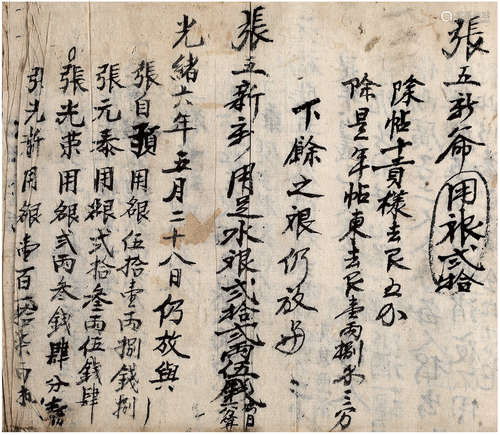 張五新爺用銀貳拾
除帖十貢樣去艮五分
除是年帖東去艮壹両捌錢三分
下餘之銀仍放好
張五新爺用足水銀貳拾貳両伍錢
光緒六年五月二十八日仍放與
張自預用銀伍拾壹両捌錢捌
張元泰用銀貳拾叁両伍錢肆
張光荣用銀貳両叁錢肆分
張光新用銀壹百